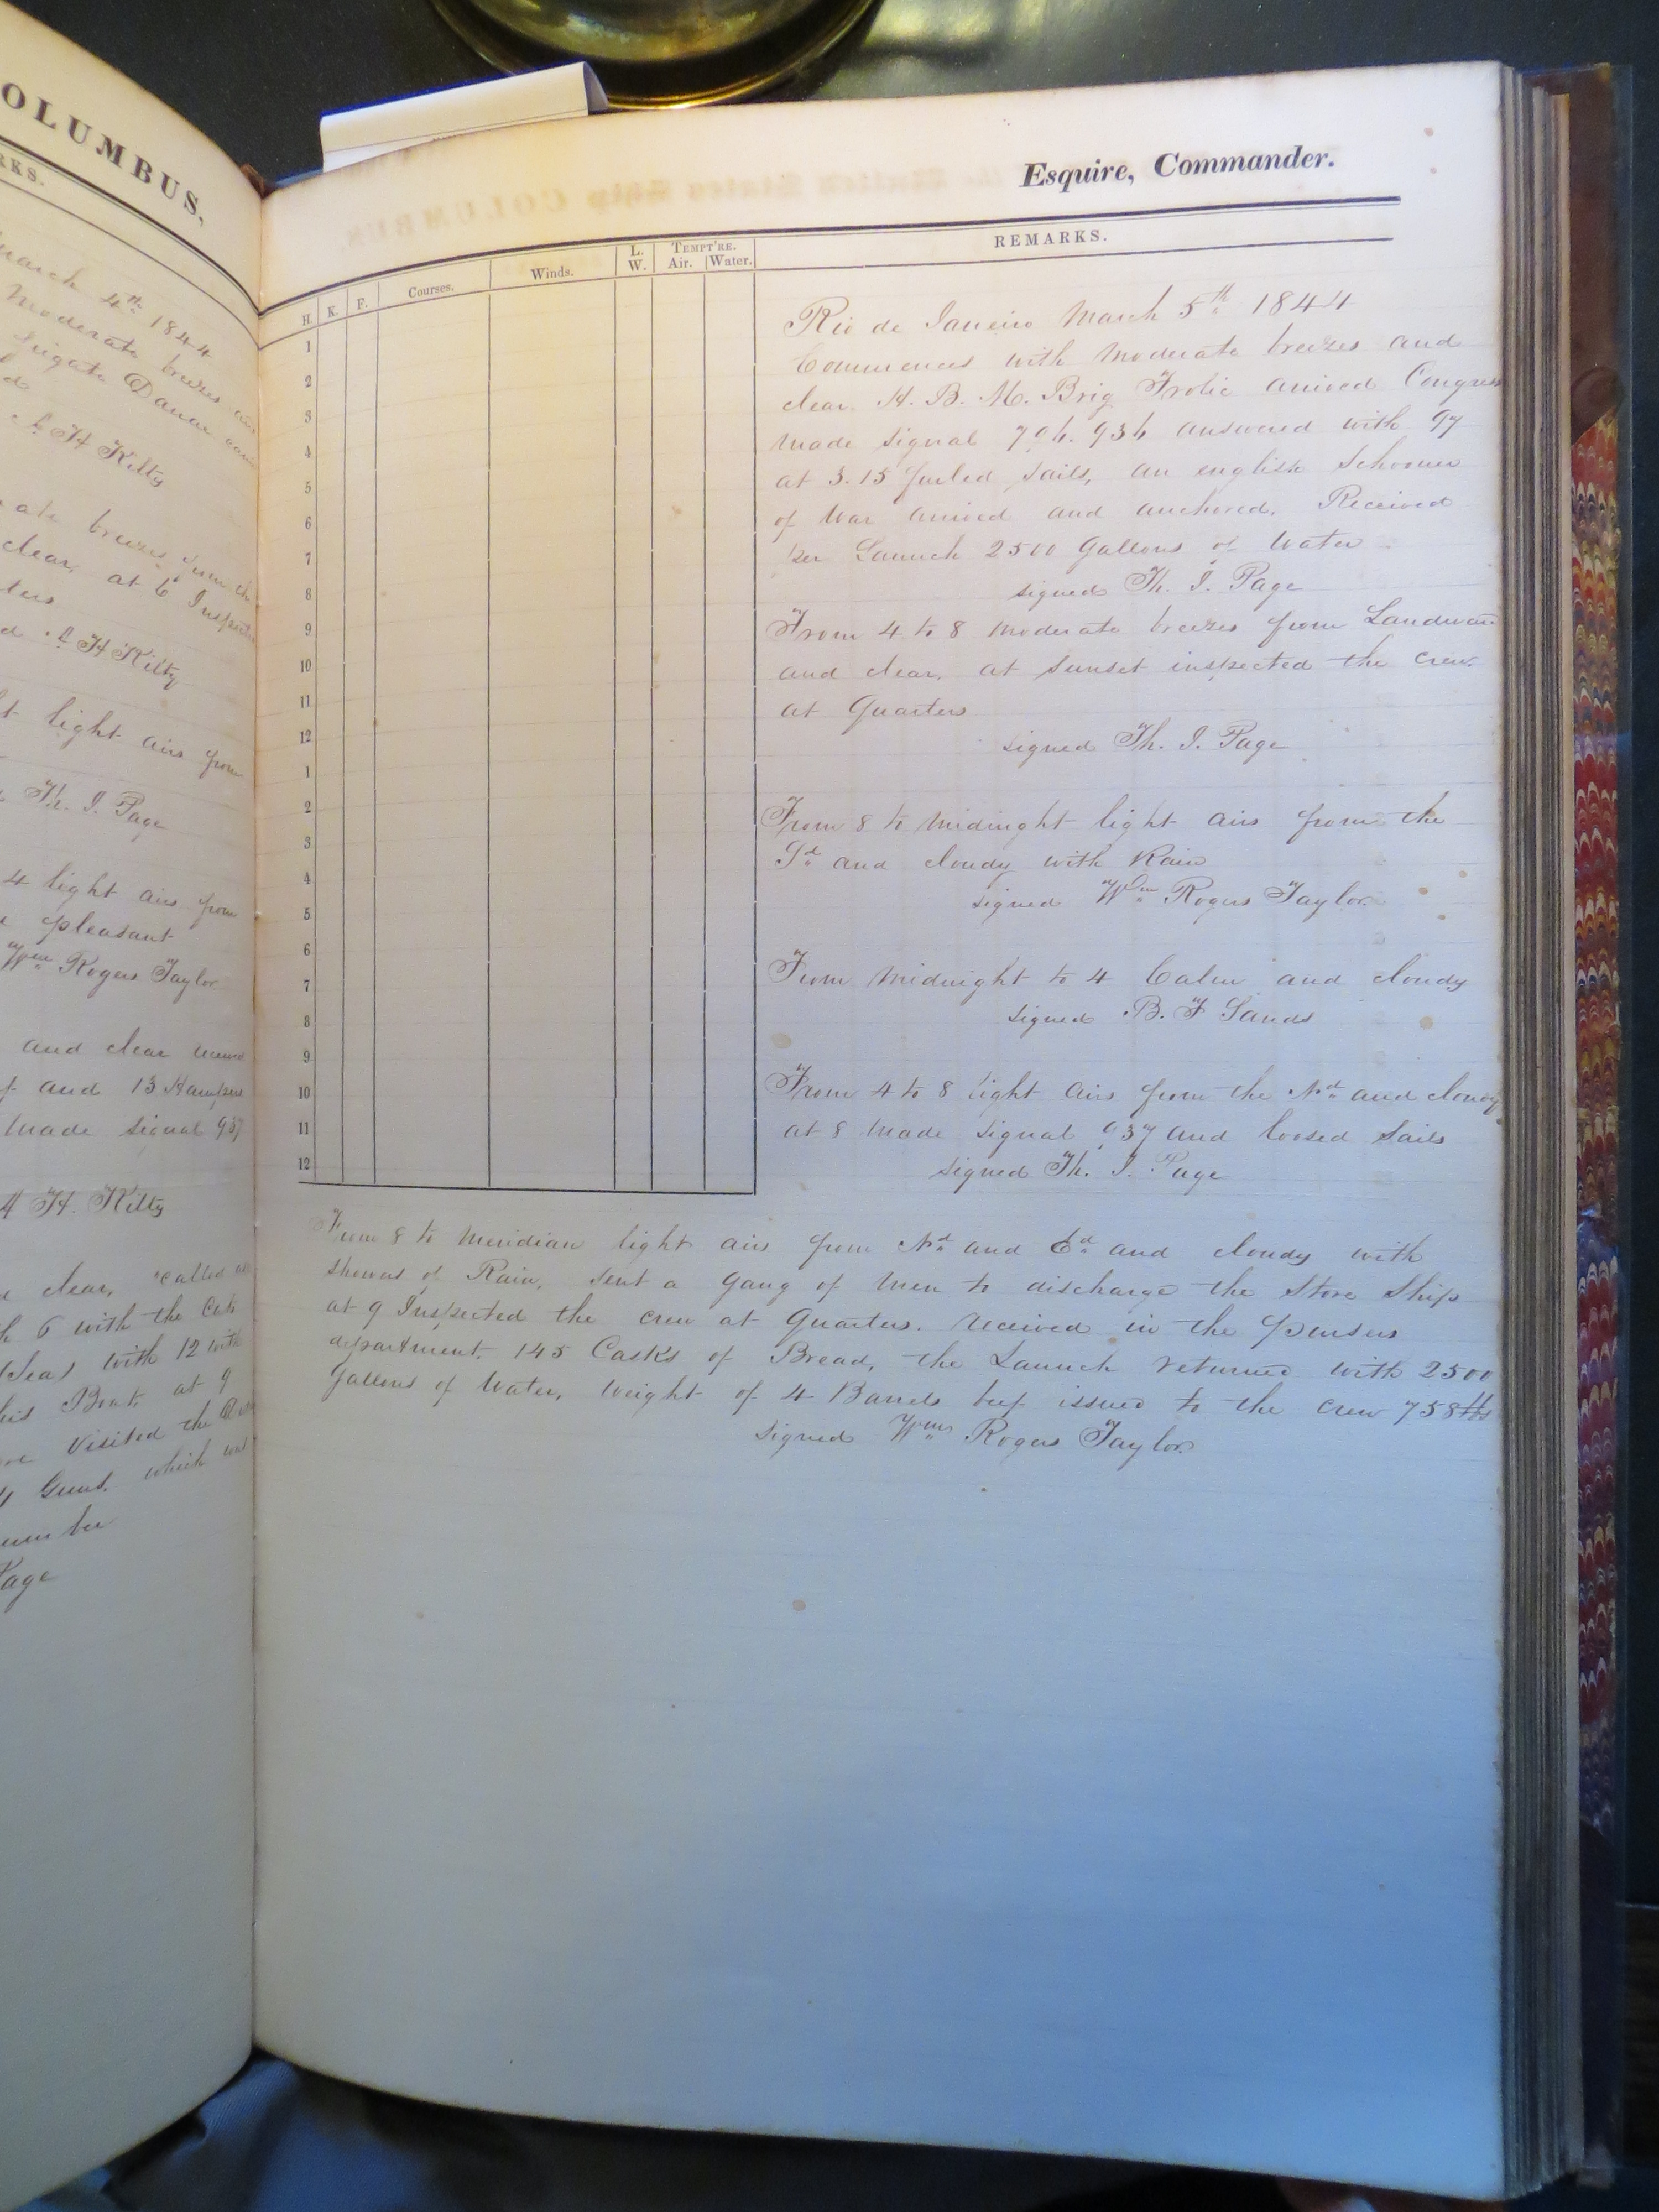 OLUMBUS,
RKS.
March 4th 1844
Moderate breezes and
frigate Danae came
d
A H Kilty
ate breezes from the
clear, at 6 Inspected
ters
d A H Kilty
t light airs from
Th. J. Page
4 light airs from
pleasant
Wm Rogers Taylor
and clear
f and 13
Made signal 937
A H. Kilty
clear, called
h 6 with the
Sea) with 12 with
his Boat, at 9
visited the
Guns. which was
number
Page
Esquire, Commander.
H. K. F. Courses. Winds. L. W. TEMPT'RE. Air. Water. REMARKS.
1
2
3
4
5
6
7
8
9
10
11
12
1
2
3
4
5
6
7
8
9
10
11
12
Rio de Janeiro March 5th 1844
Commences with Moderate breezes and
clear. H. B. M. Brig Frolic arrived Congress
Made signal 936 answered with 97
at 3.15 furled sails, an english Schooner
of War arrived and anchored. Received
per Launch 2500 Gallons of Water
signed Th. J. Page
From 4 to 8 Moderate breezes from Landward
and clear. at sunset inspected the crew
at Quarters
signed Th. J. Page
From 8 to Midnight light airs from the
Sd and cloudy with Rain
signed Wm Rogers Taylor
From Midnight to 4 Calm and cloudy
signed B. F Sands
From 4 to 8 light airs from the Nd and cloudy
at 8 Made signal 937 and loosed Sails
signed Th. J. Page
From 8 to Meridian light airs from Nd and Ed and cloudy with
showers of Rain. sent a gang of Men to discharge the Store Ship
at 9 Inspected the crew at Quarters. received in the pursers
department. 145 Casks of Bread, the Launch returned with 2500
Gallons of Water, Weight of 4 Barrels beef issued to the crew 758 lbs
signed Wm Rogers Taylor